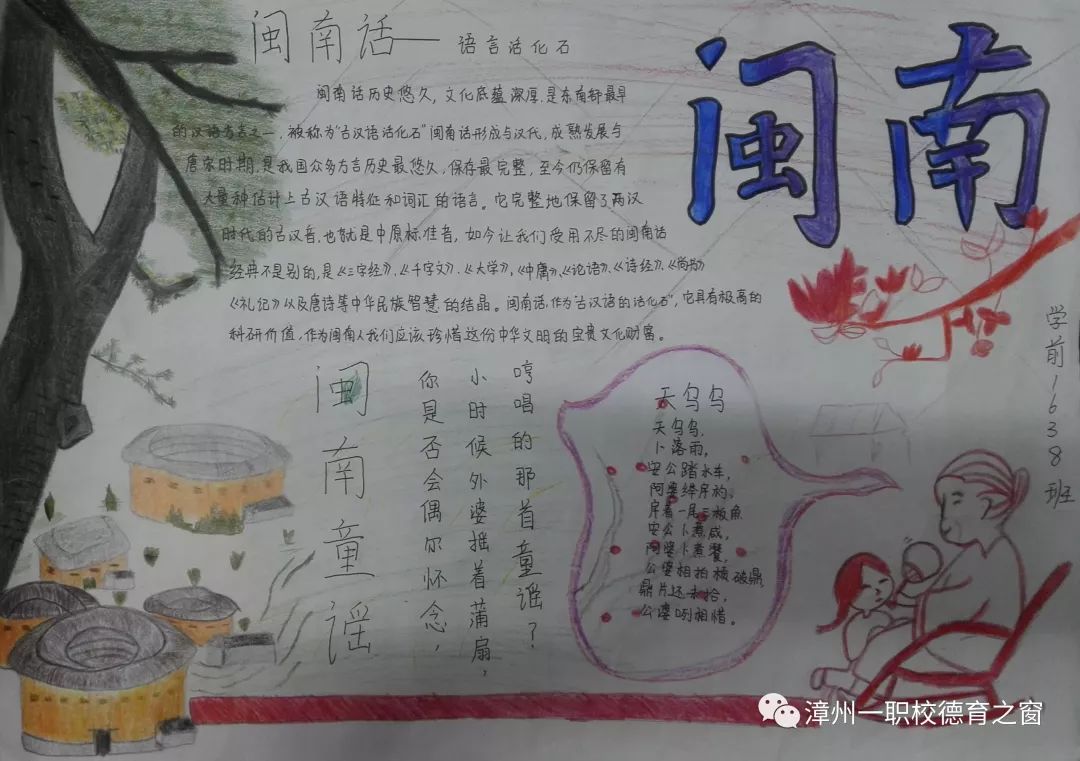 闽南话——语言活化石
闽南
闽南话历史悠久,文化底蕴深厚.是东南轩最早
的汉语方言之一,被称为"古汉语活化石"闽南话形成与汉代,成熟发展与
唐宋时期,是我国众多方言历史最悠久,保存最完整,至今仍保留有
大量种估计上古汉语特征和词汇的语言。它完整地保留了两汉
时代的古汉音,也就是中原标准音,如今让我们受用不尽的闽南话
经典不是别的,是《三字经》、《千字文》、《大学》,《中庸》、《论语》、《诗经》、《尚书》
《礼记》以及唐诗等中华民族智慧的结晶。闽南话作为"古汉语的活化石",它具有极高的
科研价值,作为闽南人我们应该珍惜这份中华文明的宝贵文化财富。
学前1638班
闽南童谣
哼唱的那首童谣?
小时候外婆摇着蒲扇,
你是否会偶尔怀念,
天乌乌
天乌乌,
卜落雨,
安公踏水车,
阿婆
一尾三板鱼
安公卜煮咸,
阿婆卜煮饗,
公婆相拍损破鼎,
鼎片还未拾,
公婆咧相惜。
漳州一职校德育之窗